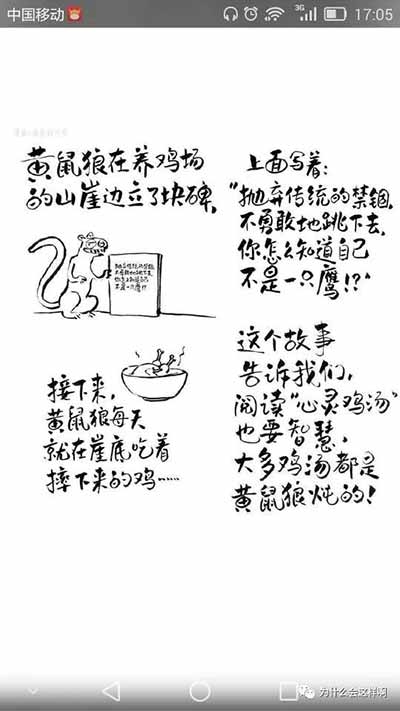 中国移动
3G
17:05
黄鼠狼在养鸡场
的山崖边立了块碑,
上面写着:
"抛弃传统的禁锢,
不勇敢地跳下去,
你怎么知道自己
不是一只鹰!?"
抛弃传统的禁锢,
不勇敢地跳下去,
你怎么知道自己
不是一只鹰!?
接下来,
黄鼠狼每天
就在崖底吃着
摔下来的鸡……
这个故事
告诉我们,
阅读"心灵鸡汤"
也要智慧,
大多鸡汤都是
黄鼠狼炖的!
为什么会这样啊